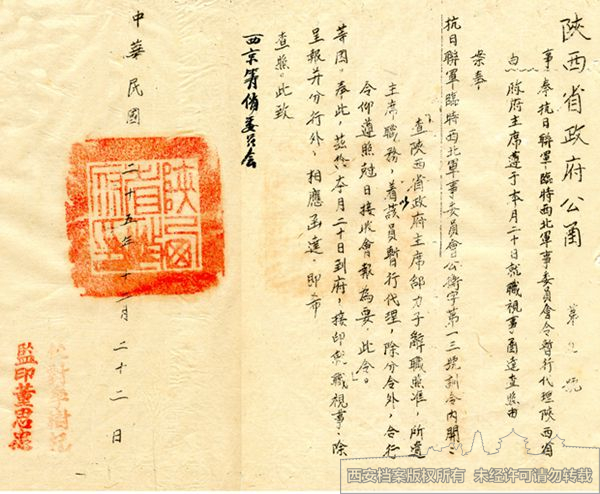 陝西省政府公函 第 號
事：奉抗日聯軍臨時西北軍事委員會令暫行代理陝西省
政府主席遵于本月二十日就職視事函達查照由
案奉
抗日聯軍臨時西北軍事委員會公衡字第一三號訓令內開：
查陝西省政府主席邵力子辭職照准，所遺
主席職務，着該員暫行代理，除分令外，合行
令仰遵照尅日接收會報為要，此令。
等因。奉此，茲於本月二十日到府，接印就職視事，除
呈報并分行外，相應函達，即希
查照。此致
西京籌備委員會
中華民國二十五年十二月二十二日
陝西省政府印
監印董思
西安档案版权所有 未经许可请勿转载